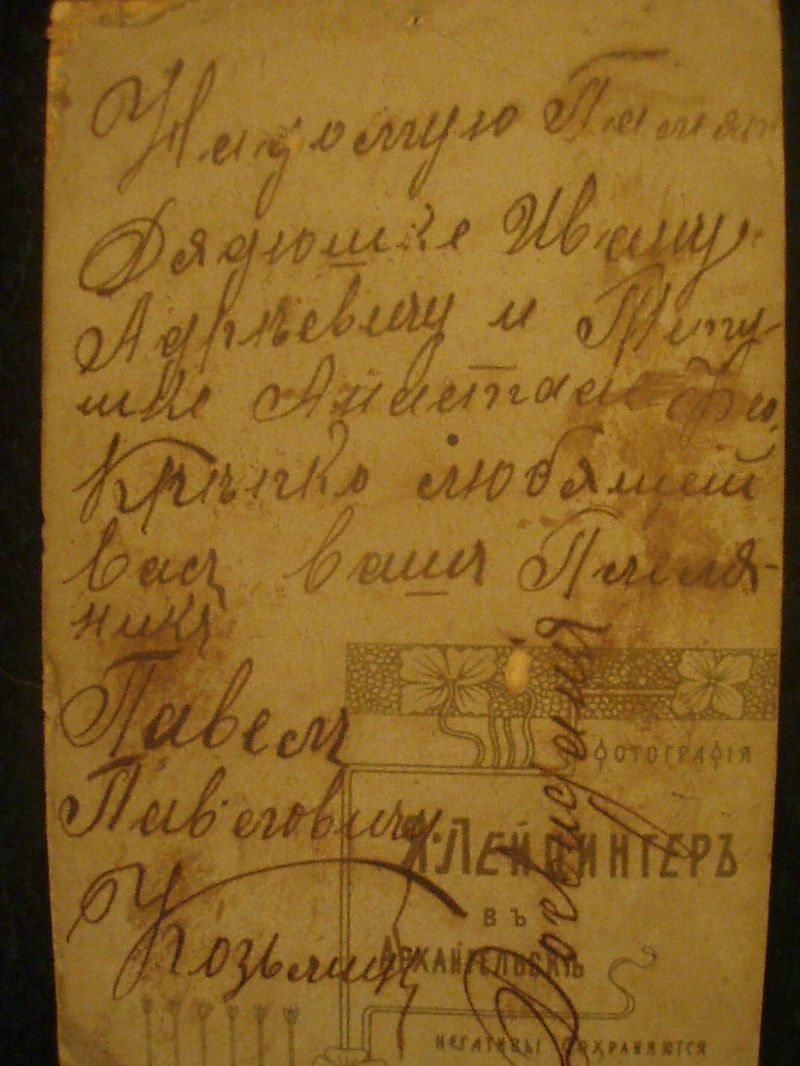 На долгую Память
Дядюшке Ивану
Андреевичу и Тетушке
Крѣпко любящей
васъ вашъ Племя-
никъ
Павелъ
Павловичъ
Козьминъ
Досвиданiя
ФОТОГРАФІЯ
ЛЕЙЦИНГЕРЪ
ВЪ
АРХАНГЕЛЬСКѢ
НЕГАТИВЫ СОХРАНЯЮТСЯ